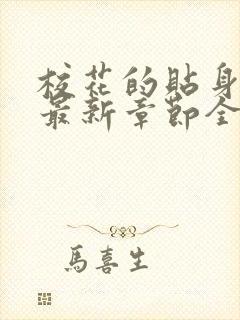 校花的貼身
最新章節全
馬喜生